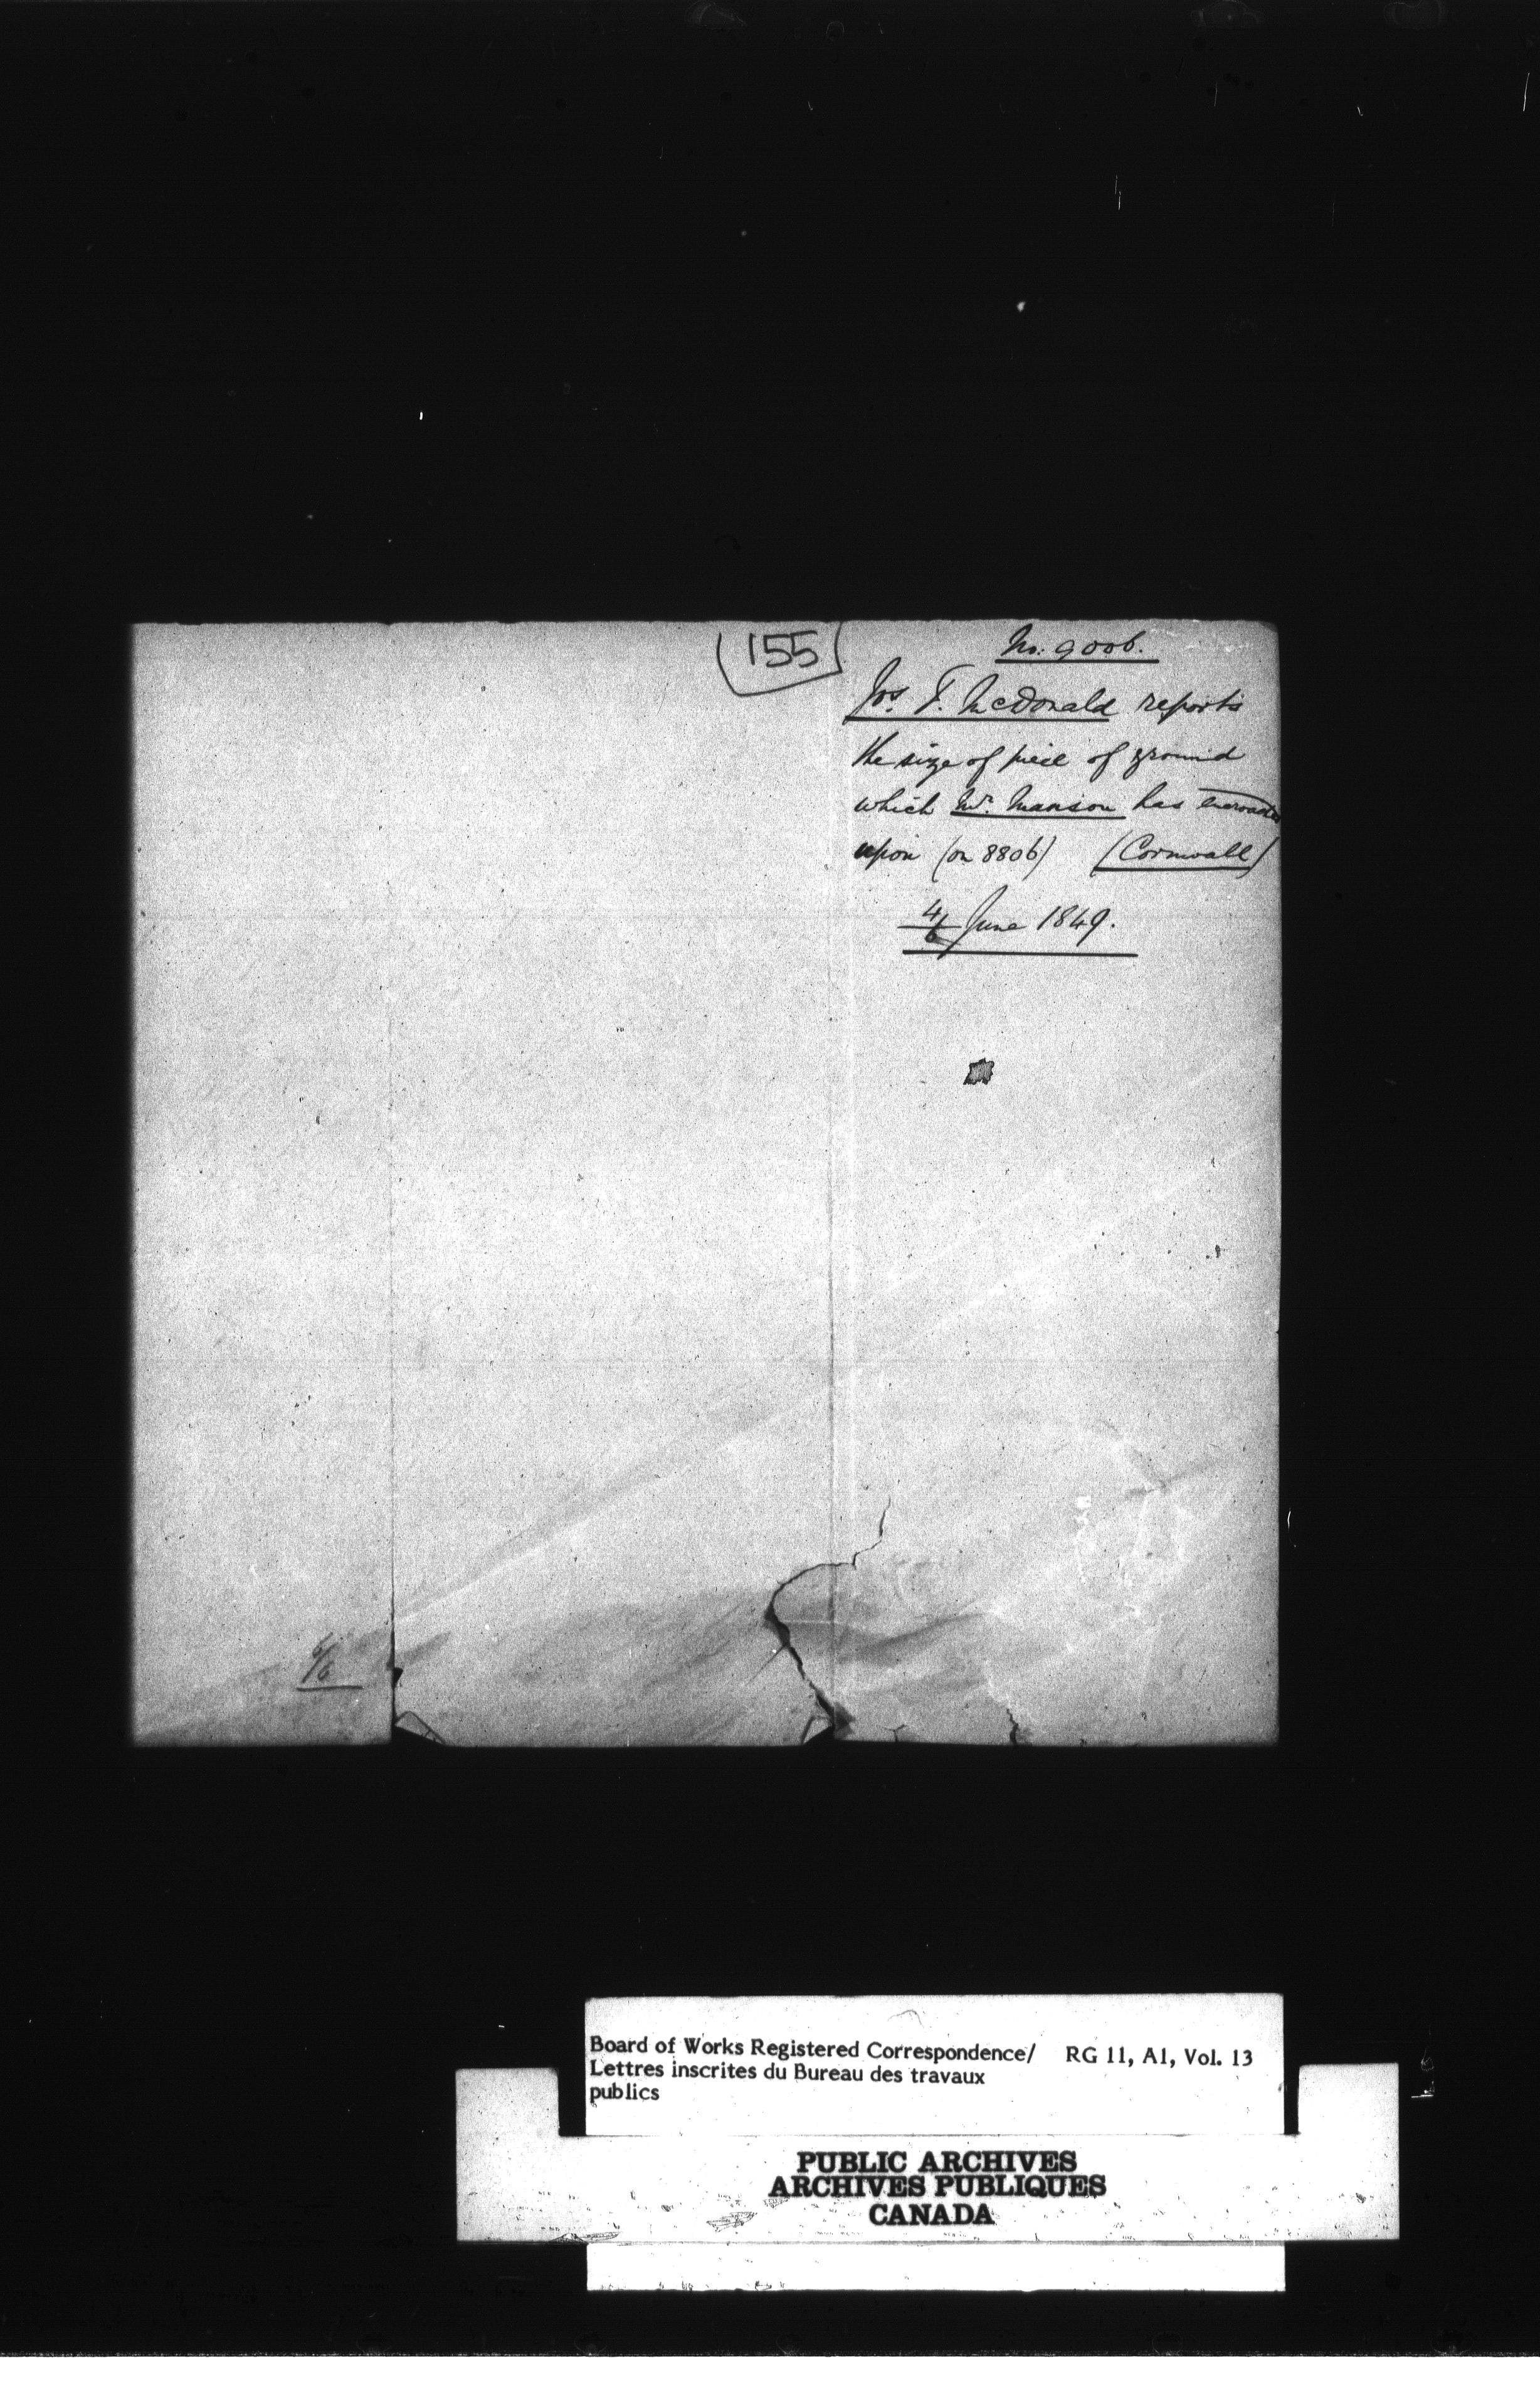 155
No. 9006.
Jos. T. McDonald reports
the size of piece of ground
which Mr. Manson has encroached
upon (on 8806) (Cornwall)
4/6 June 1849.
6/6
Board of Works Registered Correspondence/ RG 11, A1, Vol. 13
Lettres inscrites du Bureau des travaux
publics
PUBLIC ARCHIVES
ARCHIVES PUBLIQUES
CANADA